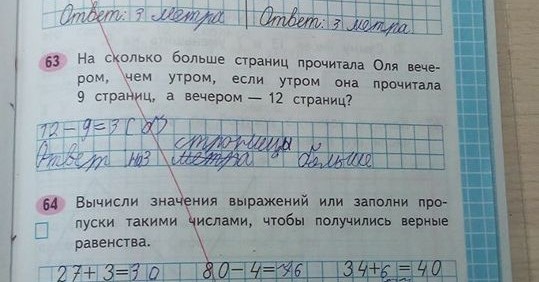 Ответ: 3 метра Ответ: 3 метра
63 На сколько больше страниц прочитала Оля вече-
ром, чем утром, если утром она прочитала
9 страниц, а вечером — 12 страниц?
12-9=3(
страницы
Ответ на3 метра больше
64 Вычисли значения выражений или заполни про-
пуски такими числами, чтобы получились верные
равенства.
27+3=30 80-4=76 34+6=40